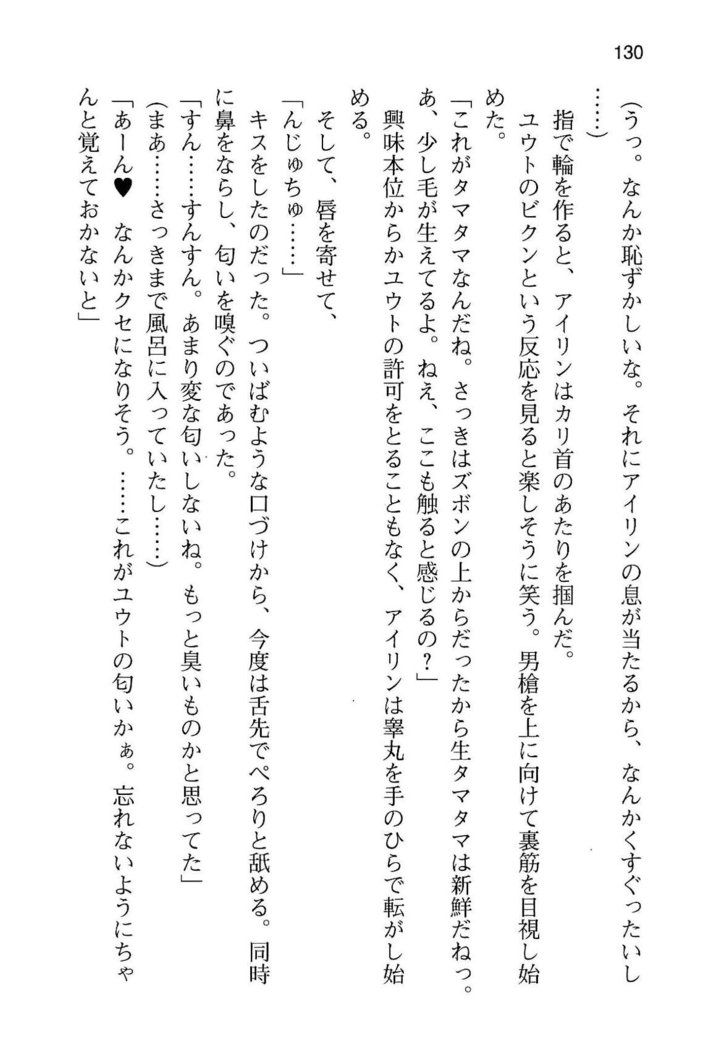 130
（うっ。なんか恥ずかしいな。それにアイリンの息が当たるから、なんかくすぐったいし
……）
指で輪を作ると、アイリンはカリ首のあたりを掴んだ。
ユウトのビクンという反応を見ると楽しそうに笑う。男槍を上に向けて裏筋を目視し始
めた。
「これがタマタマなんだね。さっきはズボンの上からだったから生タマタマは新鮮だねっ。
あ、少し毛が生えてるよ。ねえ、ここも触ると感じるの？」
興味本位からかユウトの許可をとることもなく、アイリンは睾丸を手のひらで転がし始
める。
そして、唇を寄せて、
「んじゅちゅ……」
キスをしたのだった。ついばむような口づけから、今度は舌先でぺろりと舐める。同時
に鼻をならし、匂いを嗅ぐのであった。
「すん……すんすん。あまり変な匂いしないね。もっと臭いものかと思ってた」
（まあ……さっきまで風呂に入っていたし……）
「あーん♥　なんかクセになりそう。……これがユウトの匂いかぁ。忘れないようにちゃ
んと覚えておかないと」